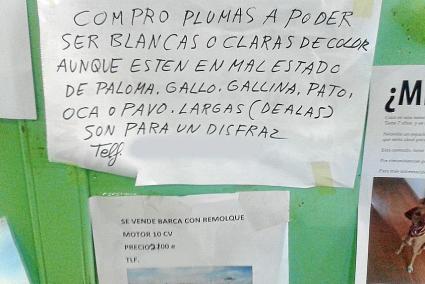 COMPRO PLUMAS A PODER
SER BLANCAS O CLARAS DE COLOR
AUNQUE ESTEN EN MAL ESTADO
DE PALOMA, GALLO, GALLINA, PATO,
OCA O PAVO. LARGAS (DE ALAS)
SON PARA UN DISFRAZ
Telf.
SE VENDE BARCA CON REMOLQUE
MOTOR 10 CV
TLF.
¿M